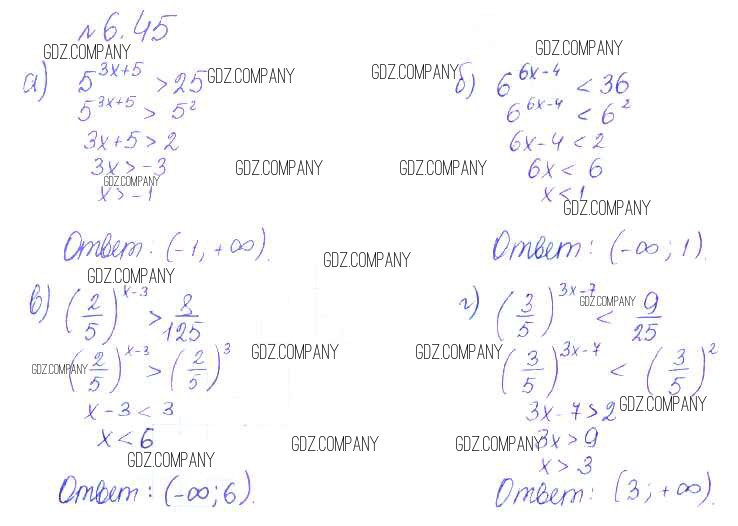 № 6.45
GDZ.COMPANY
GDZ.COMPANY
а) 5^{3x+5} > 25
GDZ.COMPANY
5^{3x+5} > 5^2
3x+5 > 2
3x > -3
GDZ.COMPANY
GDZ.COMPANY
x > -1
Ответ: (-1, +∞).
GDZ.COMPANY
б) 6^{6x-4} < 36
6^{6x-4} < 6^2
6x-4 < 2
GDZ.COMPANY
6x < 6
x < 1
GDZ.COMPANY
Ответ: (-∞; 1).
GDZ.COMPANY
GDZ.COMPANY
в) (2/5)^{x-3} > 8/125
GDZ.COMPANY
(2/5)^{x-3} > (2/5)^3
GDZ.COMPANY
x-3 < 3
x < 6
GDZ.COMPANY
GDZ.COMPANY
Ответ: (-∞; 6).
г) (3/5)^{3x-7} < 9/25
GDZ.COMPANY
GDZ.COMPANY
(3/5)^{3x-7} < (3/5)^2
3x-7 > 2
GDZ.COMPANY
3x > 9
GDZ.COMPANY
x > 3
Ответ: (3; +∞).